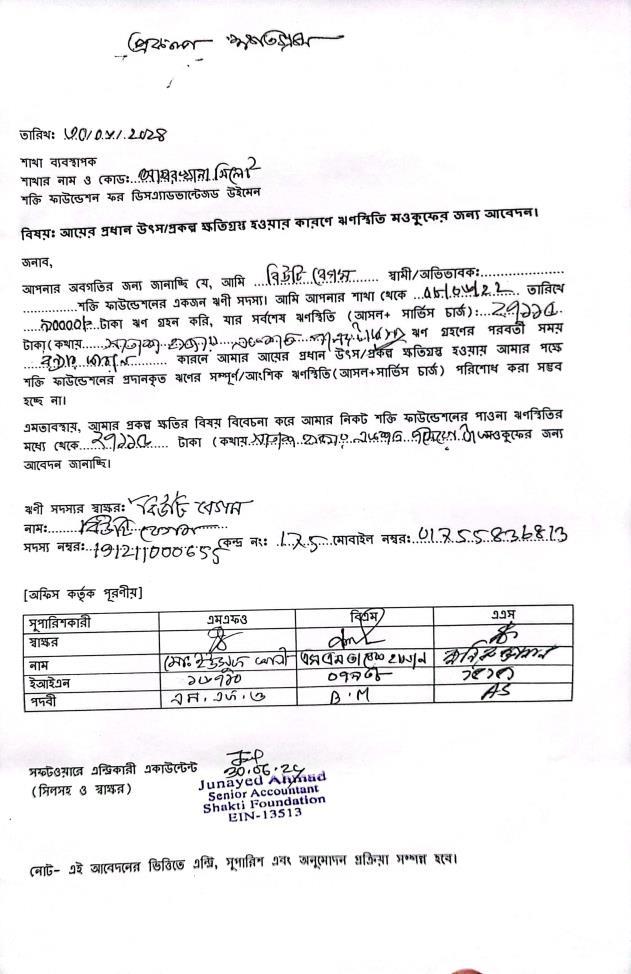 প্রকল্প ক্ষতিগ্রস্থ
তারিখ: ৩০/০৬/২০২৪
শাখা ব্যবস্থাপক
শাখার নাম ও কোড:
শক্তি ফাউন্ডেশন ফর ডিসএ্যাডভান্টেজড উইমেন
বিষয়: আয়ের প্রধান উৎস/প্রকল্প ক্ষতিগ্রস্ত হওয়ার কারণে ঋণস্থিতি মওকুফের জন্য আবেদন।
জনাব,
আপনার অবগতির জন্য জানাচ্ছি যে, আমি বিউটি বেগম স্বামী/অভিভাবক:
শক্তি ফাউন্ডেশনের একজন ঋণী সদস্য। আমি আপনার শাখা থেকে তারিখে
টাকা ঋণ গ্রহন করি, যার সর্বশেষ ঋণস্থিতি (আসল+ সার্ভিস চার্জ):
টাকা(কথায় ঋণ গ্রহণের পরবর্তী সময়
কারনে আমার আয়ের প্রধান উৎস/প্রকল্প ক্ষতিগ্রস্ত হওয়ায় আমার পক্ষে
শক্তি ফাউন্ডেশনের প্রদানকৃত ঋণের সম্পূর্ণ/আংশিক ঋণস্থিতি(আসল+সার্ভিস চার্জ) পরিশোধ করা সম্ভব
হচ্ছে না।
এমতাবস্থায়, আমার প্রকল্প ক্ষতির বিষয় বিবেচনা করে আমার নিকট শক্তি ফাউন্ডেশনের পাওনা ঋণস্থিতির
মধ্যে থেকে টাকা (কথায় মওকুফের জন্য
আবেদন জানাচ্ছি।
ঋণী সদস্যর স্বাক্ষর: বিউটি বেগম
নাম: বিউটি বেগম
সদস্য নম্বর: কেন্দ্র নং: ১২৫ মোবাইল নম্বর: 01755836813
[অফিস কর্তৃক পূরণীয়]
সুপারিশকারী এমএফও বিএম এএস
স্বাক্ষর
নাম মোঃ ইউসুফ আলী
ইআইএন
পদবী এম. এফ. ও B.M AS
সফটওয়ারে এন্ট্রিকারী একাউন্টেন্ট 30.06.24
(সিলসহ ও স্বাক্ষর) Junayed Ahmad
Senior Accountant
Shakti Foundation
EIN-13513
নোট- এই আবেদনের ভিত্তিতে এন্ট্রি, সুপারিশ এবং অনুমোদন প্রক্রিয়া সম্পন্ন হবে।